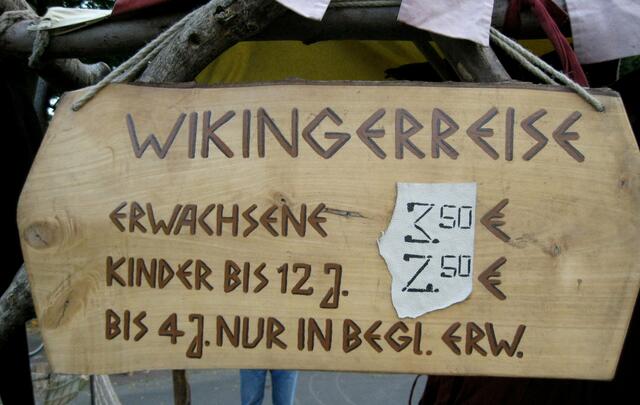 WIKINGERREISE
ERWACHSENE 3.50 €
KINDER BIS 12 J. 2.50 €
BIS 4 J. NUR IN BEGL. ERW.